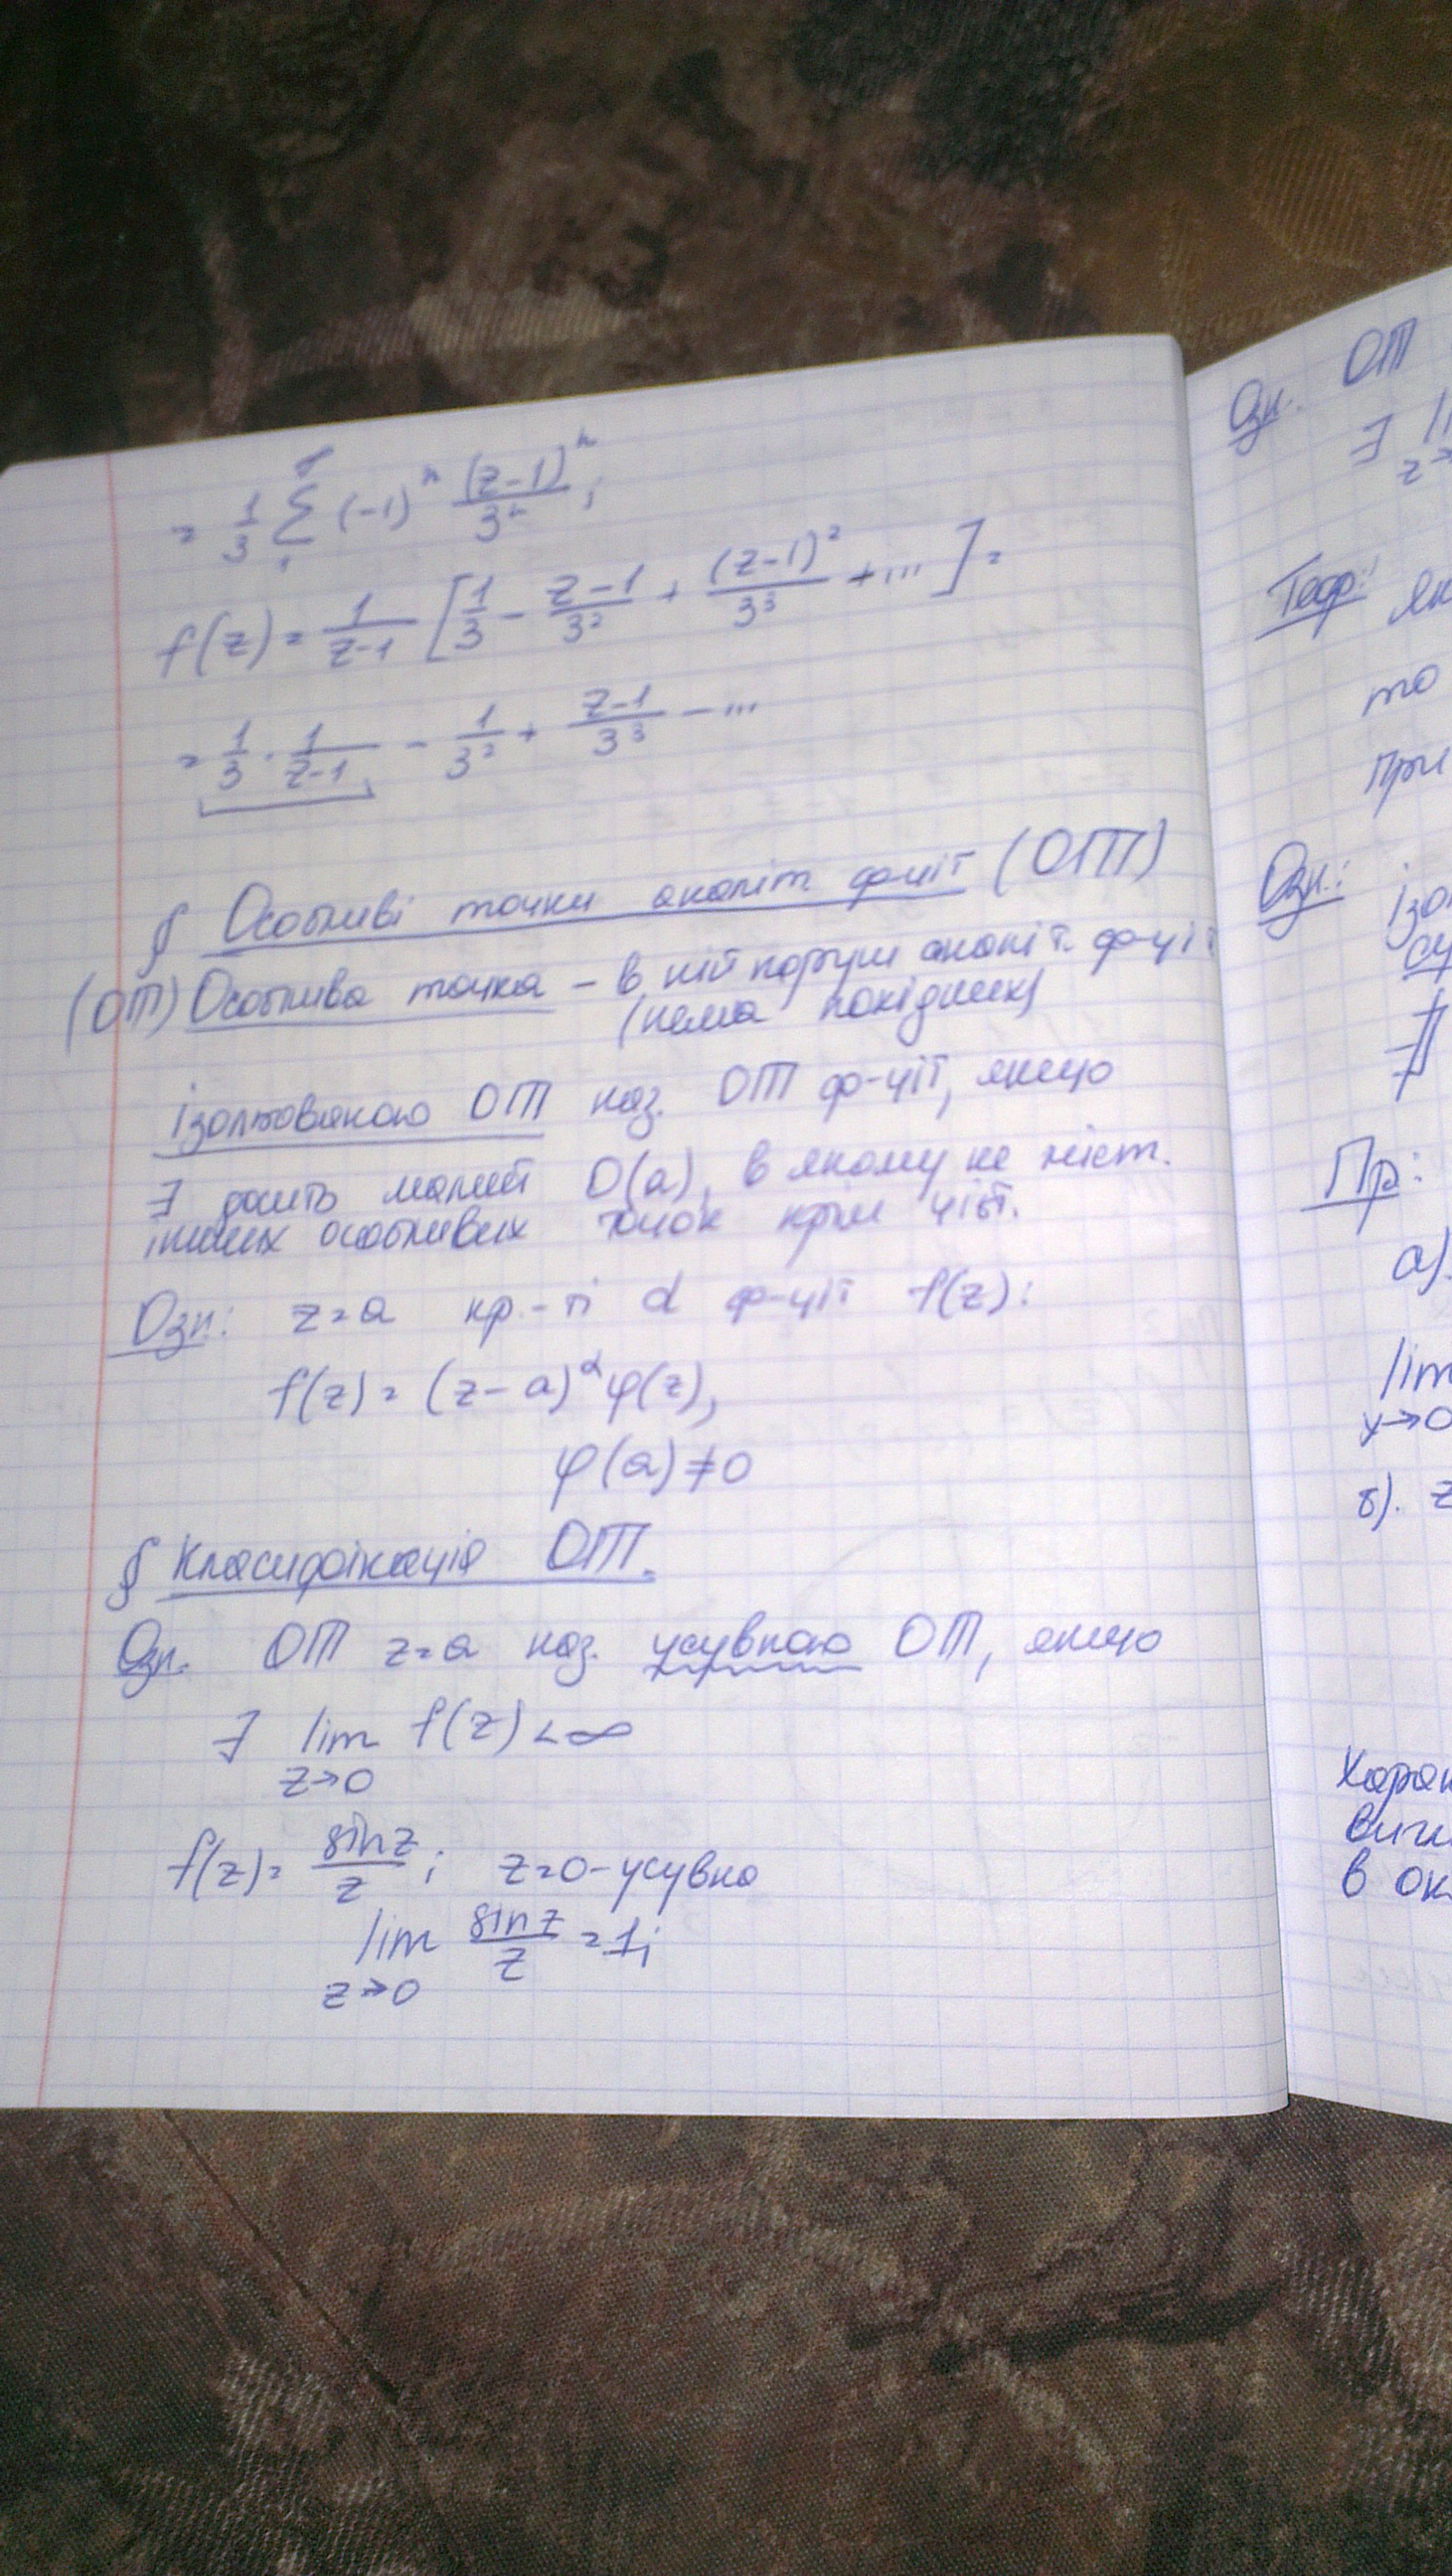 = 1/3 ∞ Σ 1 (-1)^n (z-1)^n / 3^n ;
f(z) = 1/(z-1) [ 1/3 - (z-1)/3² + (z-1)²/3³ + ... ] =
= 1/3 · 1/(z-1) - 1/3² + (z-1)/3³ - ...
§ Особливі точки аналіт. ф-ції (ОТ)
(ОТ) Особлива точка - в ній поруш аналіт. ф-ції
(нема похідних)
ізольованою ОТ наз. ОТ ф-ції, якщо
∃ досить малий O(a), в якому не міст.
інших особливих точок крім цієї.
Озн: z=a кр.-ті α ф-ції f(z):
f(z) = (z-a)^α φ(z),
φ(a) ≠ 0
§ Класифікація ОТ.
Озн. ОТ z=a наз. усувною ОТ, якщо
∃ lim f(z) < ∞
z→0
f(z) = sinz/z ; z=0 - усувна
lim sinz/z = 1;
z→0
Озн. ОТ
∃
Теор:
то
При
Озн.:
Пр:
а).
lim
y→0
б). z
в ок